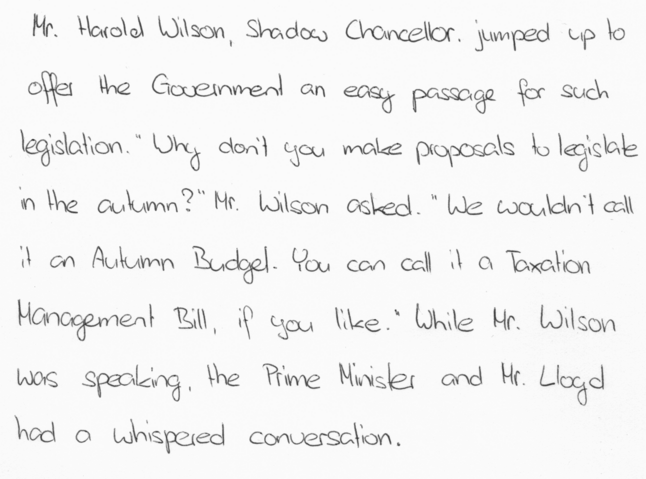 Mr. Harold Wilson, Shadow Chancellor. jumped up to
offer the Government an easy passage for such
legislation." Why don't you make proposals to legislate
in the autumn?" Mr. Wilson asked. "We wouldn't call
it an Autumn Budget. You can call it a Taxation
Management Bill, if you like." While Mr. Wilson
was speaking, the Prime Minister and Mr. Lloyd
had a whispered conversation.